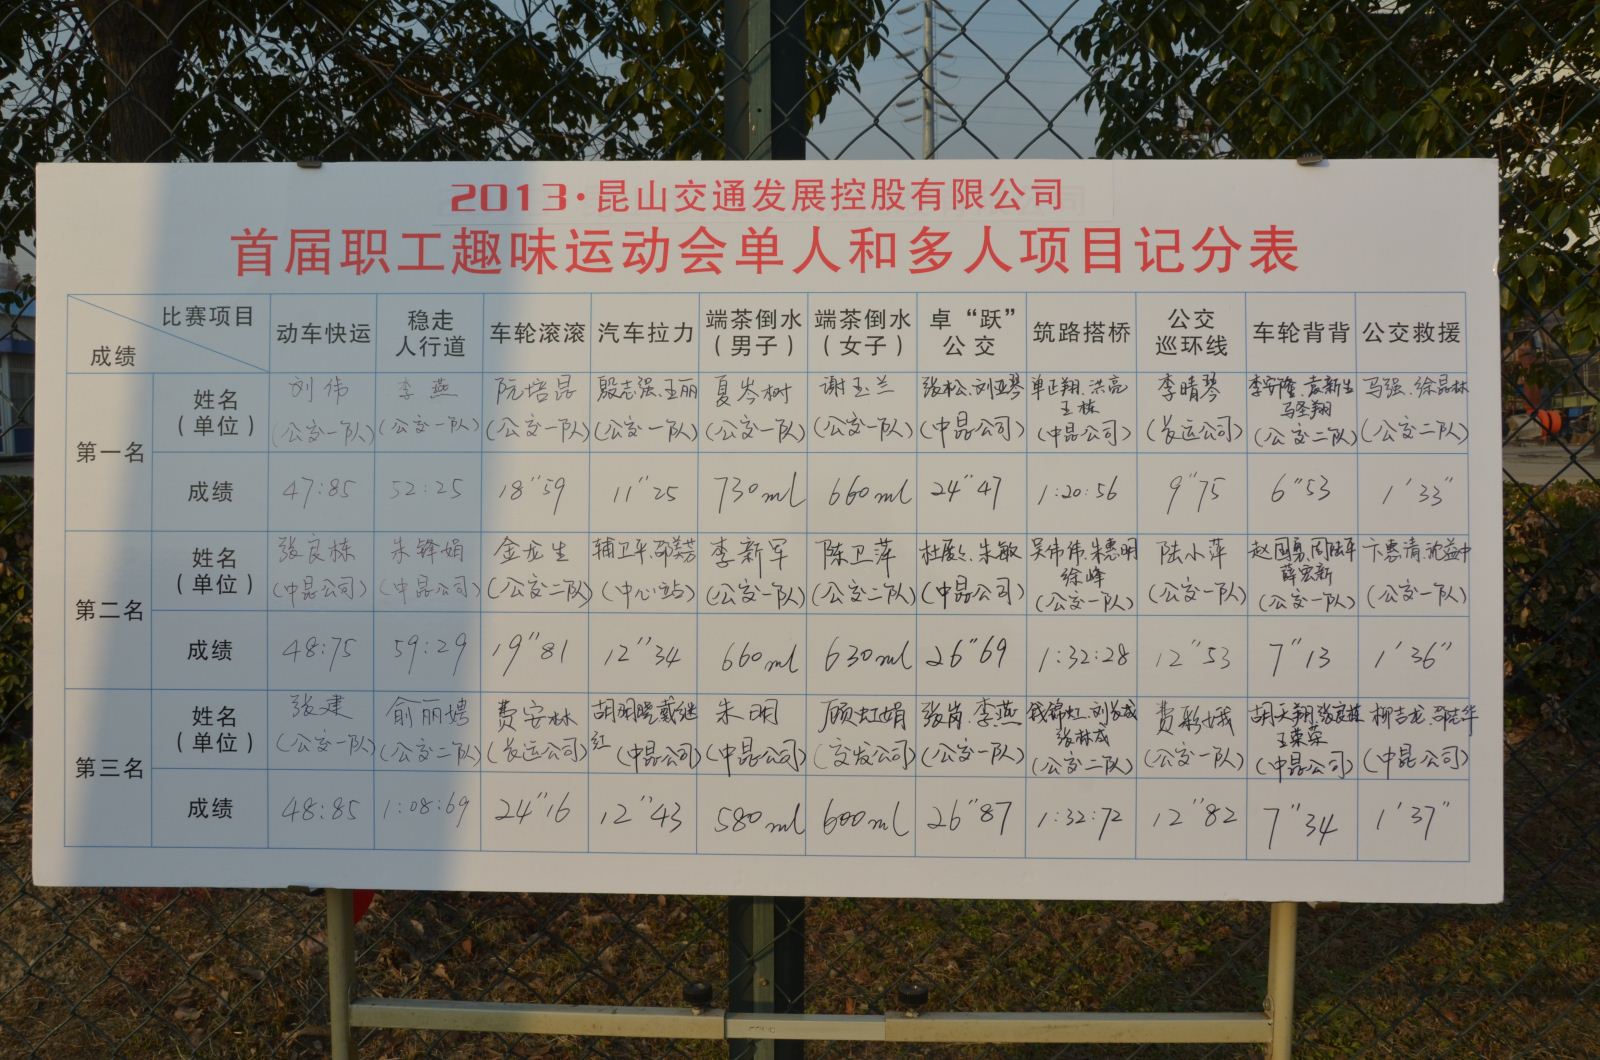 2013·昆山交通发展控股有限公司
首届职工趣味运动会单人和多人项目记分表
比赛项目
成绩
动车快运
稳走
人行道
车轮滚滚
汽车拉力
端茶倒水
（男子）
端茶倒水
（女子）
卓“跃”
公交
筑路搭桥
公交
巡环线
车轮背背
公交救援
第一名
姓名
（单位）
刘伟
(公交一队)
李燕
(公交一队)
阮培昆
(公交一队)
殷志强.王丽
(公交一队)
夏岑树
(公交一队)
谢玉兰
(公交一队)
张松.刘亚琴
(中昆公司)
单正翔.洪亮
王栋
(中昆公司)
李晴琴
(发运公司)
马圣翔
(公交二队)
马强.徐昆林
(公交二队)
成绩
47:85
52:25
18"59
11"25
730ml
660ml
24"47
1:20:56
9"75
6"53
1'33"
第二名
姓名
（单位）
张良栋
(中昆公司)
朱锋娟
(中昆公司)
金龙生
(公交二队)
辅卫平.邵芸芳
(中心站)
李新军
(公交一队)
陈卫萍
(公交二队)
朱敏
(中昆公司)
吴伟伟.朱惠明
徐峰
(公交一队)
陆小萍
(公交一队)
赵国勇.周陆平
薛宏新
(公交一队)
(公交一队)
成绩
48:75
59:29
19"81
12"34
660ml
630ml
26"69
1:32:28
12"53
7"13
1'36"
第三名
姓名
（单位）
张建
(公交一队)
俞丽娉
(公交二队)
费安林
(发运公司)
胡明晓.戴继
红
(中昆公司)
朱明
(中昆公司)
顾虹娟
(交发公司)
张岗.李燕
(公交一队)
钱锦虹.刘长成
张林成
(公交二队)
费彩娥
(公交一队)
胡天翔.张良栋
王荣荣
(中昆公司)
柳吉龙.邵志华
(中昆公司)
成绩
48:85
1:08:69
24"16
12"43
580ml
600ml
26"87
1:32:72
12"82
7"34
1'37"